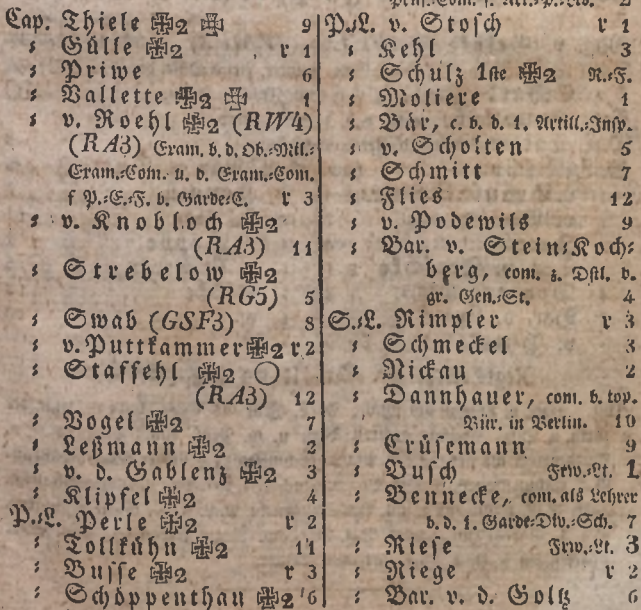 Cap. Thiele ✠2 ✠ 9
⸗ Gülle ✠2 r 1
⸗ Priwe 6
⸗ Vallette ✠2 ✠ 1
⸗ v. Roehl ✠2 (RW4)
(RA3) Exam. b. d. Ob.⸗Mil.⸗
Exam.⸗Com. u. d. Exam.⸗Com.
f P.⸗E.⸗F. b. Garde⸗C. r 3
⸗ v. Knobloch ✠2
(RA3) 11
⸗ Strebelow ✠2
(RG5) 5
⸗ Swab (GSF3) 8
⸗ v. Puttkammer ✠2 r 2
⸗ Staffehl ✠2 ◯
(RA3) 12
⸗ Vogel ✠2 7
⸗ Leßmann ✠2 2
⸗ v. d. Gablenz ✠2 3
⸗ Klipfel ✠2 4
P.⸗L. Perle ✠2 r 2
⸗ Tollkühn ✠2 11
⸗ Busse ✠2 r 3
⸗ Schöppenthau ✠2 6
P.⸗L. v. Stosch r 1
⸗ Kehl 3
⸗ Schulz 1ste ✠2 R.⸗F.
⸗ Moliere 1
⸗ Bär, c. b. d. 1. Artill.⸗Insp.
⸗ v. Scholten 5
⸗ Schmitt 7
⸗ Flies 12
⸗ v. Podewils 9
⸗ Bar. v. Stein⸗Koch⸗
berg, com. z. Dstl. b.
gr. Gen.⸗St. 4
S.⸗L. Rimpler r 3
⸗ Schmeckel 3
⸗ Nickau 2
⸗ Dannhauer, com. b. top.
Bür. in Berlin. 10
⸗ Crüsemann 9
⸗ Busch Frw.⸗Lt. 1
⸗ Bennecke, com. als Lehrer
b. d. 1. Garde⸗Div.⸗Sch. 7
⸗ Riese Frw.⸗Lt. 3
⸗ Riege r 2
⸗ Bar. v. d. Goltz 6